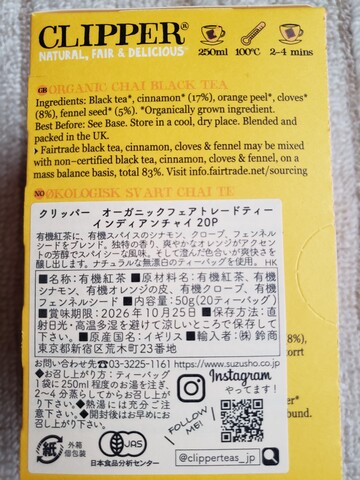 CLIPPER®
NATURAL, FAIR & DELICIOUS™
250ml 100°C 2-4 mins
GB ORGANIC CHAI BLACK TEA
Ingredients: Black tea*, cinnamon* (17%), orange peel*, cloves*
(8%), fennel seed* (5%). *Organically grown ingredient.
Best Before: See Base. Store in a cool, dry place. Blended and
packed in the UK.
Fairtrade black tea, cinnamon, cloves & fennel may be mixed
with non-certified black tea, cinnamon, cloves & fennel, on a
mass balance basis, total 83%. Visit info.fairtrade.net/sourcing
NO ØKOLOGISK SVART CHAI TE
クリッパー オーガニックフェアトレードティー
インディアンチャイ 20P
有機紅茶に、有機スパイスのシナモン、クローブ、フェンネル
シードをブレンド。独特の香り、爽やかなオレンジがアクセント
の芳醇でスパイシーな風味。そして澄んだ色合いが爽快さを
醸し出します。ナチュラルな無漂白のティーバッグを使用。 HK
■名称:有機紅茶 ■原材料名:有機紅茶、有機
シナモン、有機オレンジの皮、有機クローブ、有機
フェンネルシード ■内容量:50g(20ティーバッグ)
■賞味期限:2026年10月25日 ■保存方法:直
射日光・高温多湿を避けて涼しいところで保存して
下さい。■原産国名:イギリス ■輸入者:㈱鈴商
東京都新宿区荒木町23番地
お問い合わせ先☎03-3225-1161 https://www.suzusho.co.jp
◆お召し上がり方:ティーバッグ
1袋に250ml程度のお湯を注ぎ、
2~4分蒸らしてからお召し上が
り下さい。◆熱湯には充分ご注
意下さい。◆開封後はお早めに
お召し上がり下さい。
Instagram
やってます!
FOLLOW ME!
@clipperteas_jp
紙
外箱
個包装
JAS
日本食品分析センター